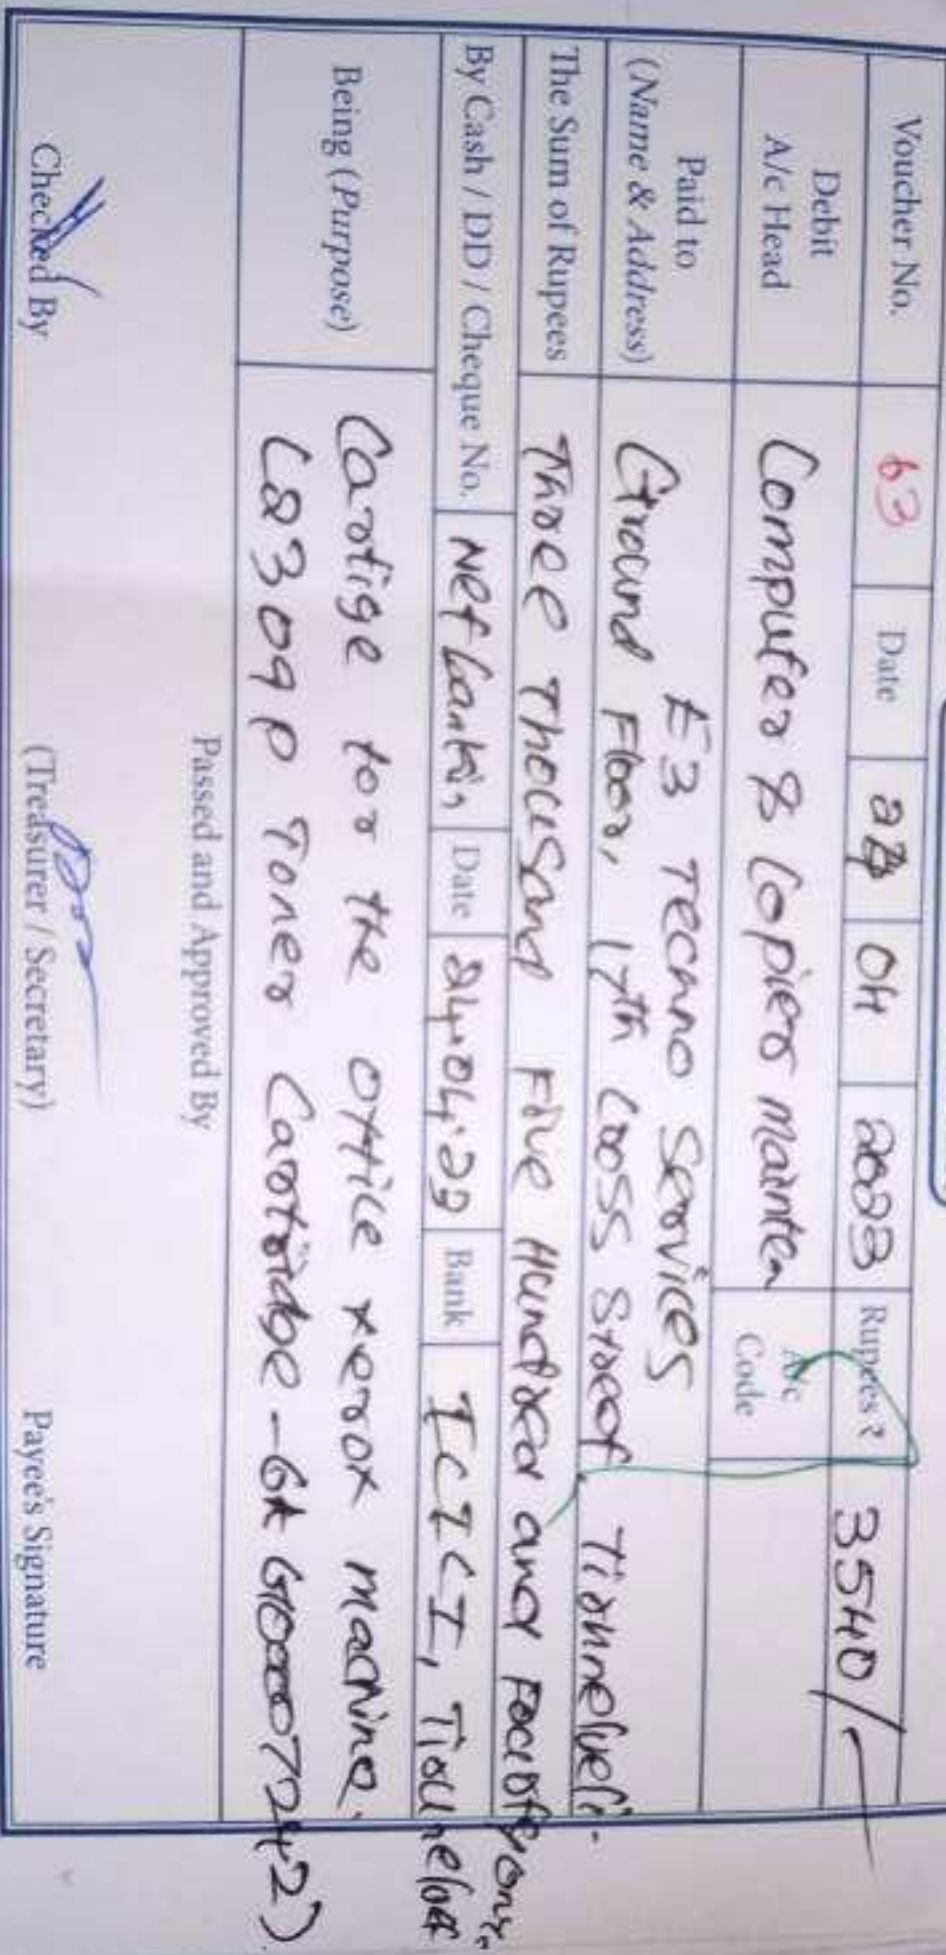 Voucher No. 63 Date 24 04 2023 Rupees ₹ 3540/-
Debit A/c Head Computer & Copier mainten A/c Code
Paid to E3 Techno Services
(Name & Address) Ground Floor, 17th Cross Street Tirunelveli.
The Sum of Rupees Three Thousand Five Hundred and Fourty only
By Cash / DD / Cheque No. Net Date 24.04.23 Bank ICICI,
Being (Purpose) Cartige for the office xerox machine.
Toner Cartridge
Passed and Approved By
Checked By (Treasurer / Secretary) Payee's Signature